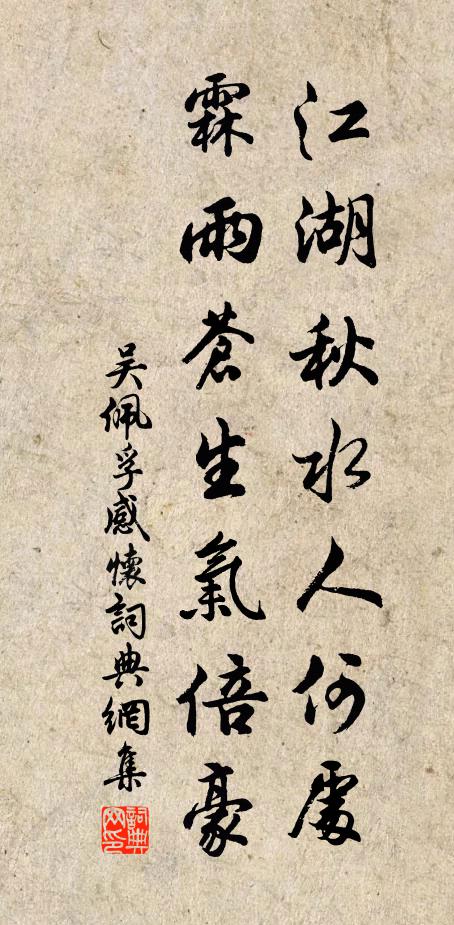 江湖秋水人何處
霖雨蒼生氣倍豪
吴佩孚感懷詞典網集
詞典網印